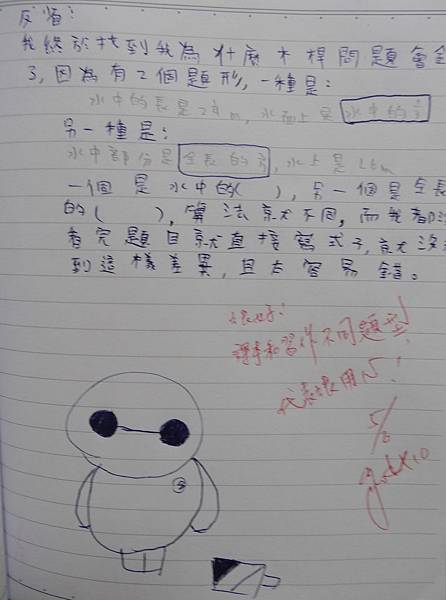 反省:
我終於找到我為什麼木桿問題會全
3,因為有2個題形,一種是:
水中的長是2 m,水面上是水中的
另一種是:
水中部分是全長的,水上是1.6m
一個是水中的( ),另一個是全長
的( ),算法就不同,而我都沒
看完題目就直接寫式子,就沒
到這樣差異,且太容易錯。
很好!
課本和習作不同題型!
代表很用心!
5/8
good×10